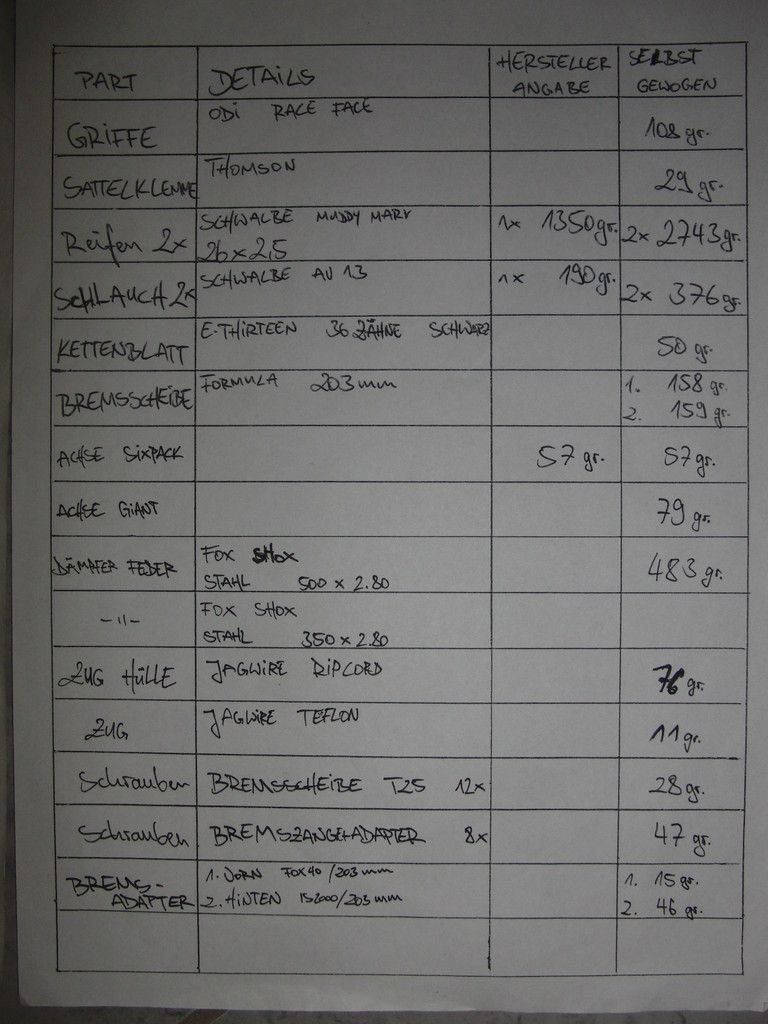 PART DETAILS HERSTELLER ANGABE SELBST GEWOGEN
GRIFFE ODI RACE FACE 108 gr.
SATTELKLEMME THOMSON 29 gr.
Reifen 2x SCHWALBE MUDDY MARY 26x2,5 1x 1350gr. 2x 2743gr.
SCHLAUCH 2x SCHWALBE AV 13 1x 190gr. 2x 376gr.
KETTENBLATT E-THIRTEEN 36 ZÄHNE SCHWARZ 50 gr.
BREMSSCHEIBE FORMULA 203mm 1. 158 gr.
2. 159 gr.
ACHSE SIXPACK 57 gr. 57 gr.
ACHSE GIANT 79 gr.
DÄMPFER FEDER FOX SHOX 483 gr.
STAHL 500 x 2.80
-11- FOX SHOX
STAHL 350 x 2.80
ZUG HÜLLE JAGWIRE RIPCORD 76 gr.
ZUG JAGWIRE TEFLON 11 gr.
Schrauben BREMSSCHEIBE T25 12x 28 gr.
Schrauben BREMSZANGE+ADAPTER 8x 47 gr.
BREMS- 1. VORN FOX40/203mm 1. 15gr.
ADAPTER 2. HINTEN IS2000/203mm 2. 46 gr.